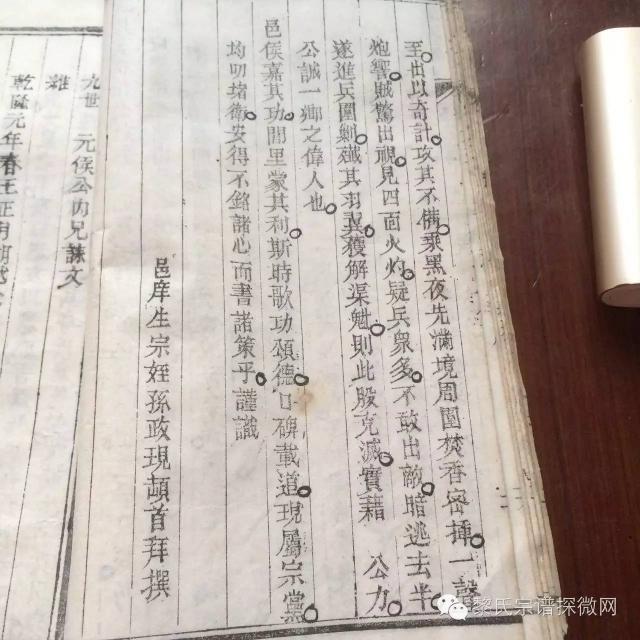 至出以奇計攻其不備乘黑夜先滿境周圍焚香密插一聲
炮響賊驚出視見四面火灼疑兵衆多不敢出敵暗逃去半
遂進兵圍勦殲其羽翼獲解渠魁則此股克滅實藉 公力
公誠一鄉之偉人也
邑侯嘉其功閭里蒙其利斯時歌功頌德口碑載道現屬宗黨
均叨捍衛安得不銘諸心而書諸策乎謹識
邑庠生宗姪孫政現頓首拜撰
九世 元侯公
乾隆元年春王正月
黎氏宗谱探微网